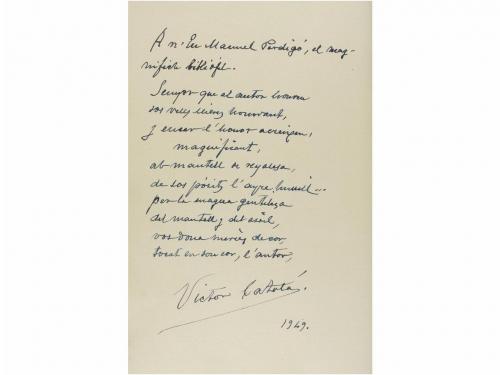 A n'En Manuel Perdigó, el mag-
nífich bibliòfil.
Senyor que al autor honreu
sos vells llibres honorant,
y encar l'honor acreixeu,
magnificant,
ab mantell de reyalesa,
de sos pòrits l'ayre humil...
per la magna gentilesa
del mantell y del estil,
vos dona mercès de cor,
tocat en son cor, l'autor,
Victor Català.
1949.